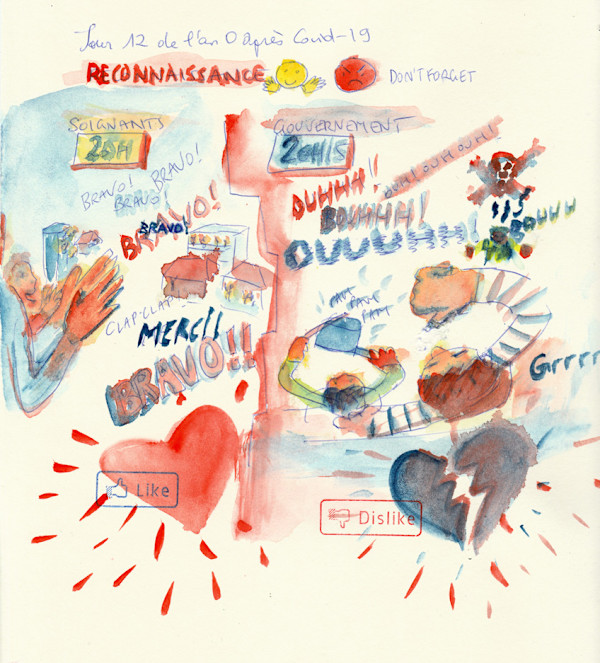 Jour 12 de l'an 0 après Covid-19
RECONNAISSANCE
DON'T FORGET
SOIGNANTS
20H
BRAVO! BRAVO!
BRAVO!
BRAVO!
BRAVO!
CLAP-CLAP
MERCI!
BRAVO!!
Like
GOUVERNEMENT
20H15
OUH! OUH OUH!
OUHHH!!
BOUHHH!
OUUUUHH!
BOUHH
PAM
PAM
PAM
Grrrr
Dislike